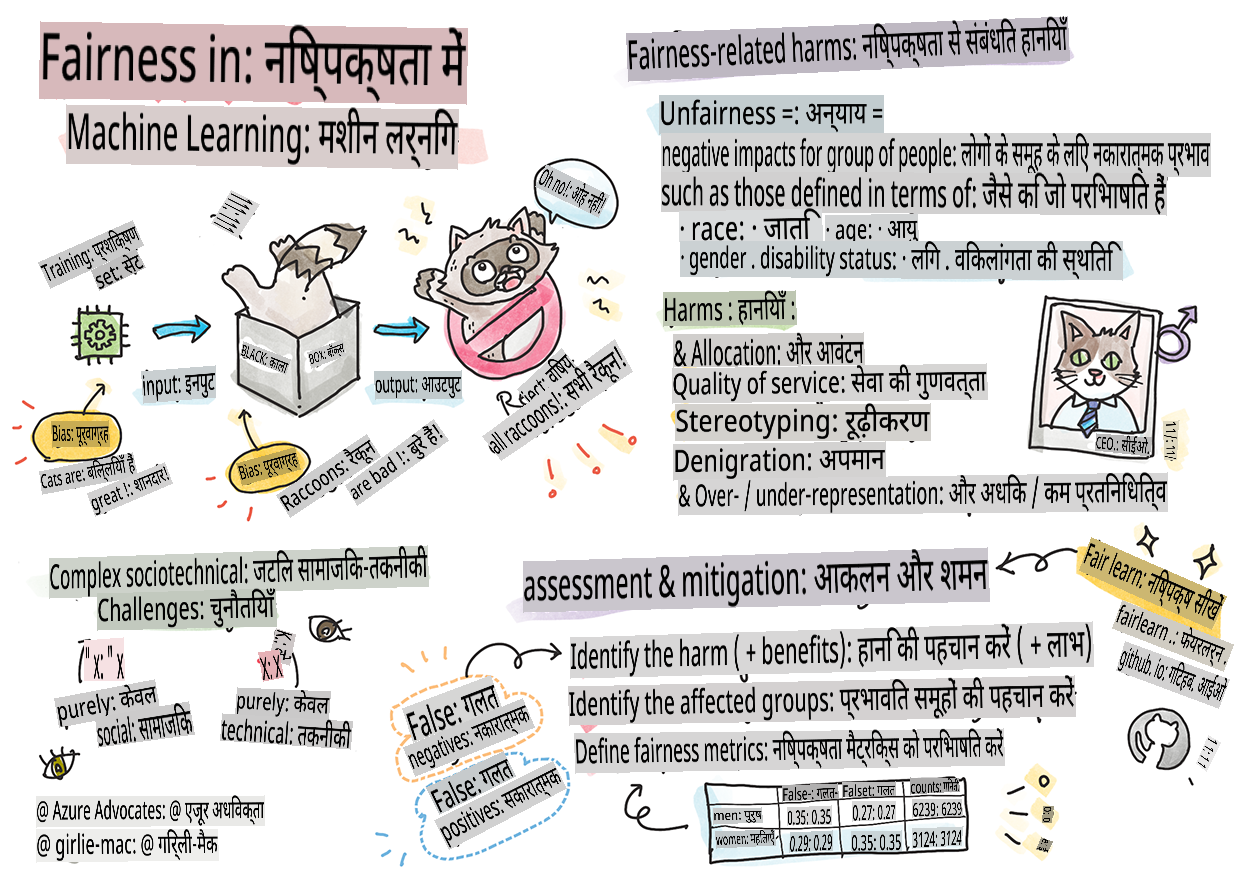 Fairness in: निष्पक्षता में
Machine Learning: मशीन लर्निंग
Training: प्रशिक्षण
set: सेट
input: इनपुट
BLACK: काला
BOX: बॉक्स
output: आउटपुट
Oh no!: ओह नहीं!
Reject: विषय:
all raccoons!: सभी रैकून!
Bias: पूर्वाग्रह
Cats are: बिल्लियाँ हैं
great !: शानदार!
Bias: पूर्वाग्रह
Raccoons: रैकून
are bad !: बुरे हैं!
Fairness-related harms: निष्पक्षता से संबंधित हानियाँ
Unfairness =: अन्याय =
negative impacts for group of people: लोगों के समूह के लिए नकारात्मक प्रभाव
such as those defined in terms of: जैसे कि जो परिभाषित हैं
· race: · जाति · age: · आयु
· gender . disability status: · लिंग . विकलांगता की स्थिति
Harms : हानियाँ :
& Allocation: और आवंटन
Quality of service: सेवा की गुणवत्ता
Stereotyping: रूढ़ीकरण
Denigration: अपमान
& Over- / under-representation: और अधिक / कम प्रतिनिधित्व
CEO.: सीईओ.
Complex sociotechnical: जटिल सामाजिक-तकनीकी
Challenges: चुनौतियाँ
(" x: " x
x: x
purely: केवल
social: सामाजिक
purely: केवल
technical: तकनीकी
@ Azure Advocates: @ एज़ूर अधिवक्ता
@ girlie-mac: @ गिर्ली-मैक
assessment & mitigation: आकलन और शमन
Fair learn: निष्पक्ष सीखें
fairlearn .: फेयरलर्न .
github. io: गिटहब. आईओ
Identify the harm ( + benefits): हानि की पहचान करें ( + लाभ)
Identify the affected groups: प्रभावित समूहों की पहचान करें
Define fairness metrics: निष्पक्षता मैट्रिक्स को परिभाषित करें
False: गलत
negatives: नकारात्मक
False: गलत
positives: सकारात्मक
False-: गलत- Falset: गलत counts: गिनती
men: पुरुष 0.35: 0.35 0.27: 0.27 6239: 6239
women: महिलाएँ 0.29: 0.29 0.35: 0.35 3124: 3124